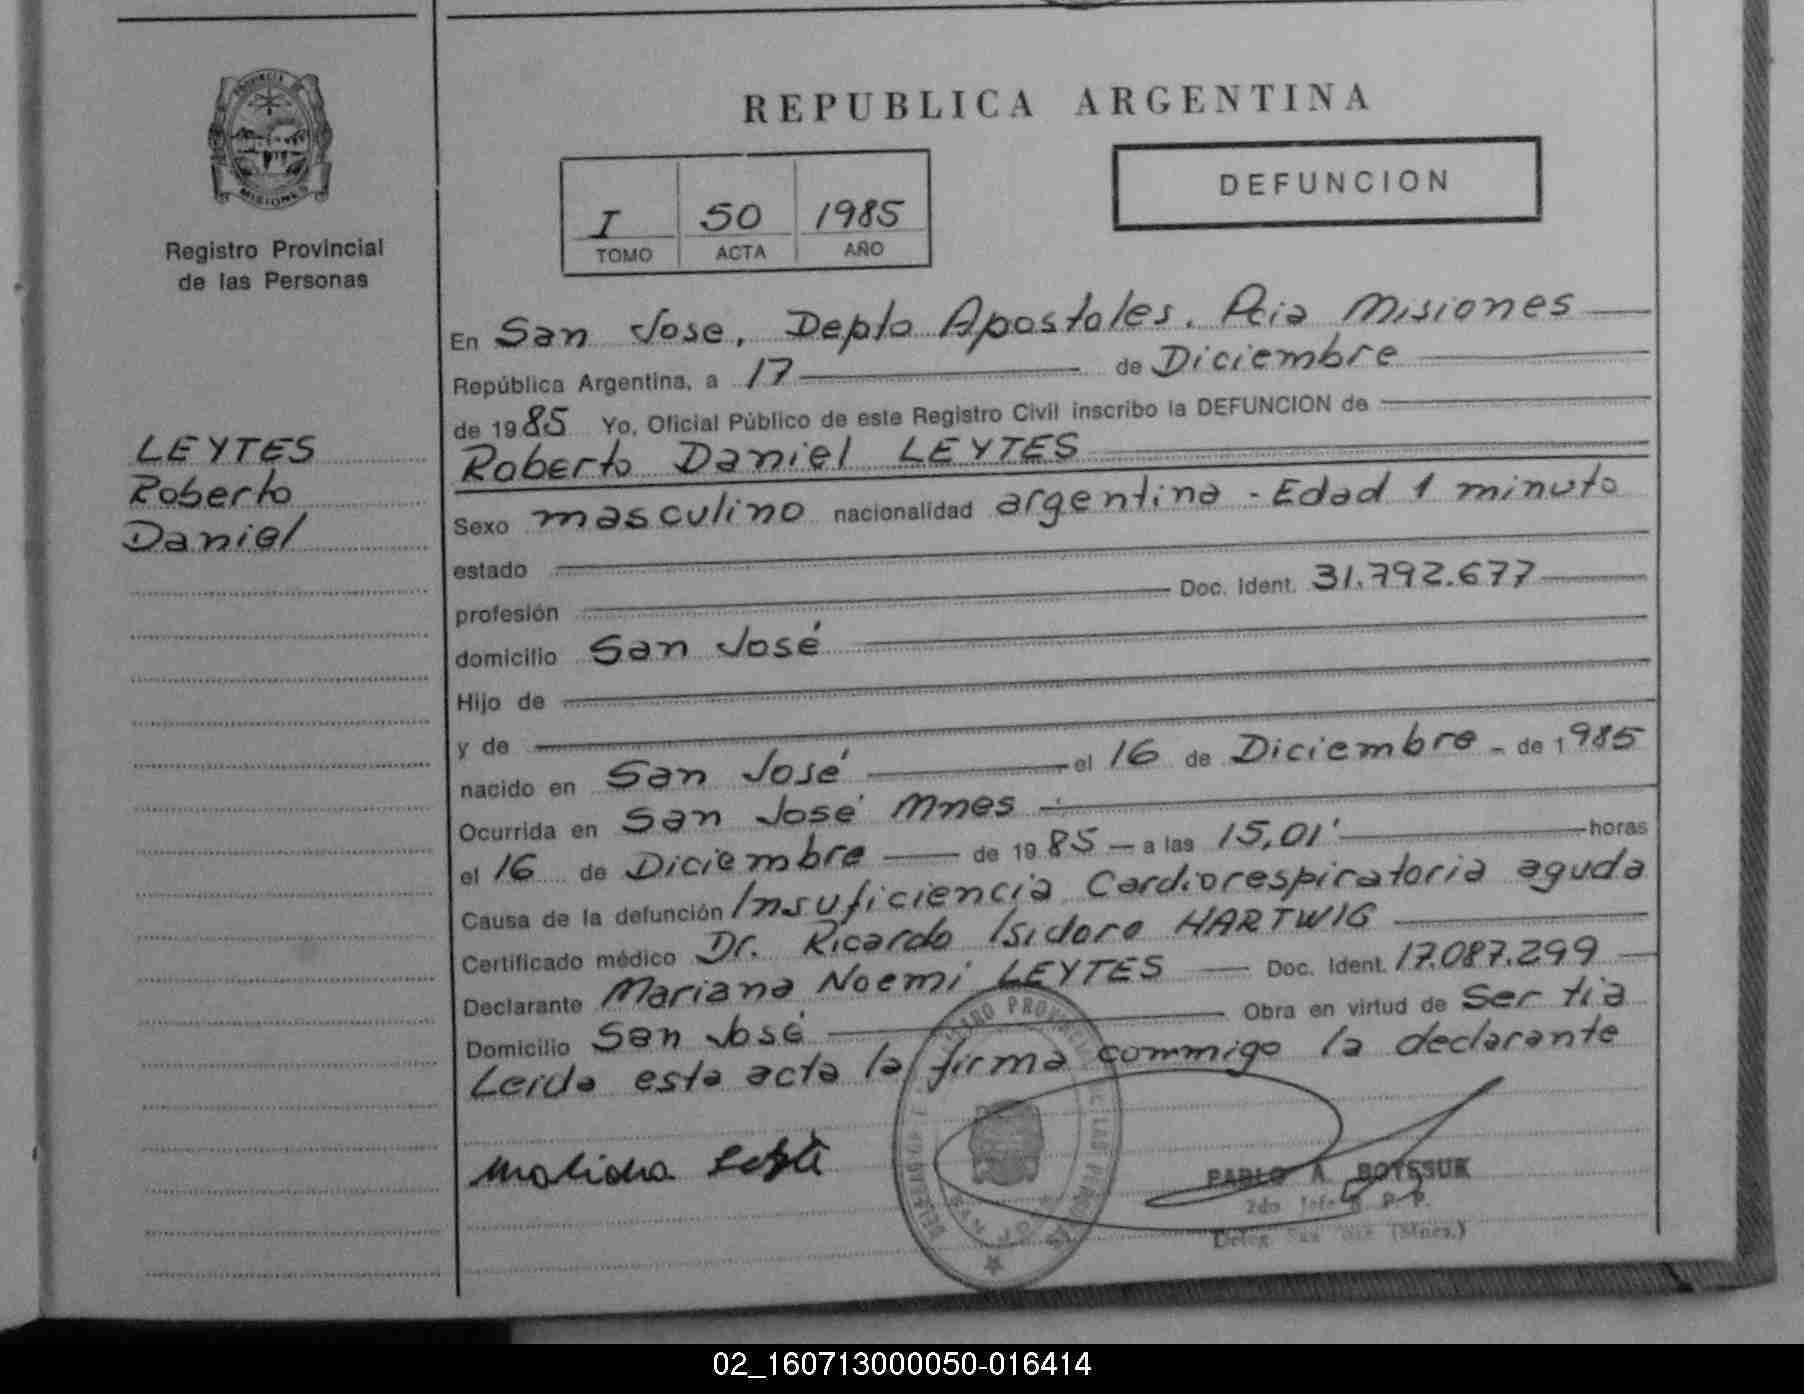 REPUBLICA ARGENTINA
PROVINCIA DE
MISIONES
Registro Provincial
de las Personas
I 50 1985
TOMO ACTA AÑO
DEFUNCION
LEYTES
Roberto
Daniel
En San Jose, Depto Apostoles. Pcia Misiones
República Argentina, a 17 de Diciembre
de 1985 Yo, Oficial Público de este Registro Civil inscribo la DEFUNCION de
Roberto Daniel LEYTES
Sexo masculino nacionalidad argentina - Edad 1 minuto
estado
profesión Doc. Ident. 31.792.677
domicilio San José
Hijo de
y de
nacido en San José el 16 de Diciembre - de 1985
Ocurrida en San José Mnes
el 16 de Diciembre de 1985 a las 15,01' horas
Causa de la defunción Insuficiencia Cardiorespiratoria aguda
Certificado médico Dr. Ricardo Isidoro HARTWIG
Declarante Mariana Noemi LEYTES Doc. Ident. 17.087.299
Domicilio San José Obra en virtud de Ser tia
Leida esta acta la firma commigo la declarante
PABLO A. BOTESUK
2do Jefe R. P. P.
Deleg. San José (Mnes.)
02_160713000050-016414